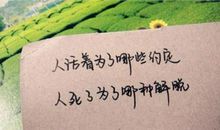 人活着为了哪些约定
人死了为了哪种解脱